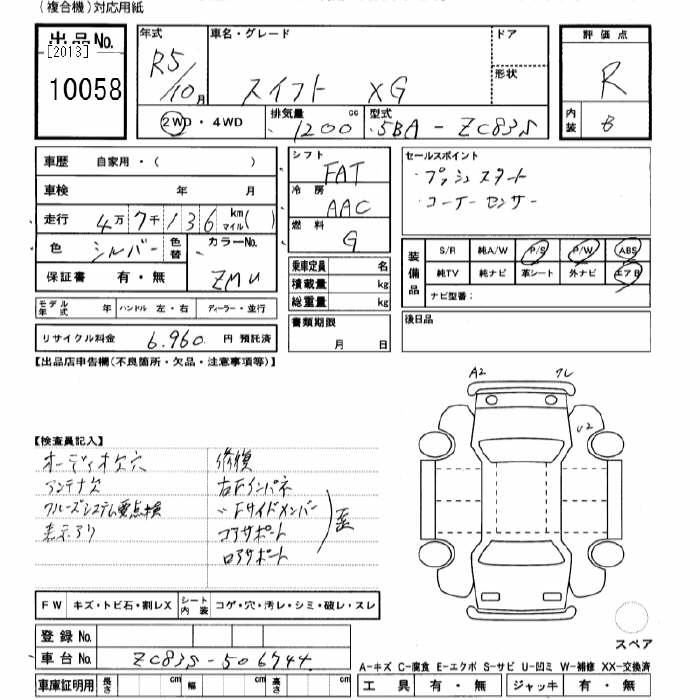 (複合機)対応用紙
出品No.
[2013]
10058
年式
R5/10月
車名・グレード
スイフト XG
ドア
形状
評価点
R
内装
B
2WD・4WD
排気量
1200 cc
型式
5BA-ZC83S
車歴 自家用・( )
車検 年 月
走行 4万7千136 km マイル( )
色 シルバー 色替
カラーNo.
ZMU
保証書 有・無
モデル年式 年 ハンドル 左・右 ディーラー・並行
リサイクル料金 6,960 円 預託済
シフト
FAT
冷房
AAC
燃料
G
乗車定員 名
積載量 kg
総重量 kg
書類期限
月 日
セールスポイント
・プッシュスタート
・コーナーセンサー
装備品
S/R 純A/W P/S P/W ABS
純TV 純ナビ 革シート 外ナビ エアB
ナビ型番:
後日品
【出品店申告欄(不良箇所・欠品・注意事項等)】
A2
ワレ
U2
【検査員記入】
オーディオ欠穴
アンテナ欠
クルーズシステム要点検
表示アリ
修復
右Fインパネ
〃Fサイドメンバー
コアサポート
ロアサポート
歪
FW キズ・トビ石・割レX
シート内装 コゲ・穴・汚レ・シミ・破レ・スレ
登録No.
車台No. ZC83S-506744
車庫証明用 長さ cm 幅 cm 高さ cm
スペア
A-キズ C-腐食 E-エクボ S-サビ U-凹ミ W-補修 XX-交換済
工具 有・無 ジャッキ 有・無